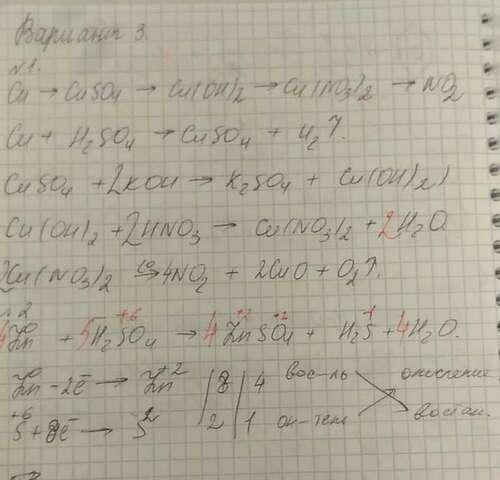 Вариант 3.
№1.
Cu → CuSO4 → Cu(OH)2 → Cu(NO3)2 → NO2
Cu + H2SO4 → CuSO4 + H2↑.
CuSO4 + 2KOH → K2SO4 + Cu(OH)2)
Cu(OH)2 + 2HNO3 → Cu(NO3)2 + 2H2O
2Cu(NO3)2 →(t°) 4NO2 + 2CuO + O2↑.
№2
4Zn⁰ + 5H2S⁺⁶O4 → 4Zn⁺²SO4 + H2S + 4H2O.
Zn⁰ - 2ē → Zn⁺² | 8 | 4 вос-ль окисление
S⁺⁶ + 8ē → S⁻² | 2 | 1 ок-тель восстан.